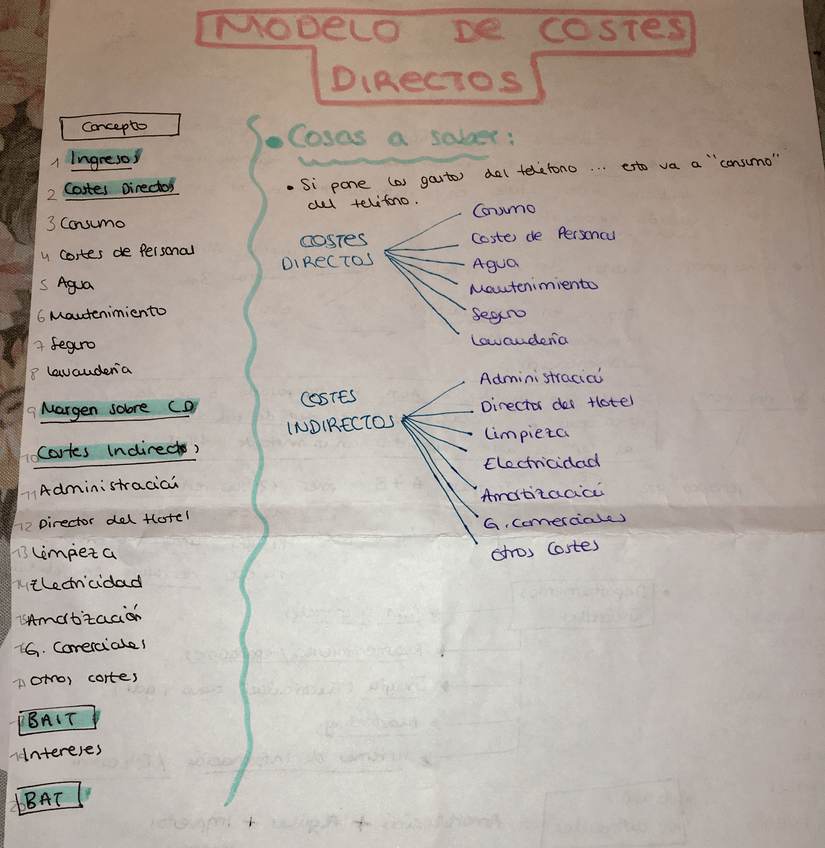 MODELO DE COSTES
DIRECTOS
Concepto
1 Ingresos
2 Costes Directos
3 Consumo
4 Costes de Personal
5 Agua
6 Mantenimiento
7 Seguro
8 Lavandería
9 Margen sobre CD
10 Costes Indirectos
11 Administración
12 Director del Hotel
13 Limpieza
14 Electricidad
15 Amortización
16 G. Comerciales
17 Otros costes
18 BAIT
19 Intereses
20 BAT
• Cosas a saber:
• Si pone los gastos del teléfono ... esto va a "consumo"
del teléfono.
COSTES
DIRECTOS
Consumo
Costes de Personal
Agua
Mantenimiento
Seguro
Lavandería
COSTES
INDIRECTOS
Administración
Director del Hotel
Limpieza
Electricidad
Amortización
G. comerciales
Otros Costes